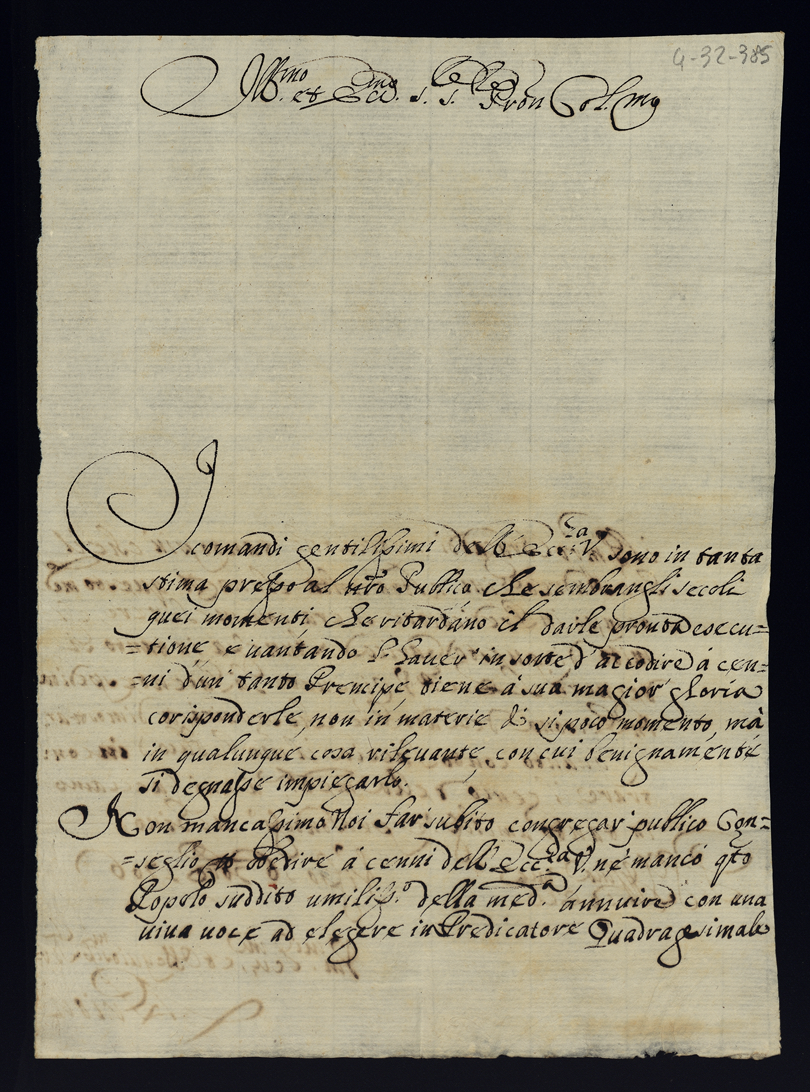 4-32-385
Ill.mo et Ecc.mo S. S. Pron Col.mo
I comandi gentilissimi dell' Ecc.za V. sono in tanta
stima presso al nro Publico che sembrangli secoli
quei momenti che ritardano il darle pronta esecu-
=tione e uantando l'hauer' in sorte d'accodire á cen-
=ni d'un' tanto Prencipe tiene á sua magior' gloria
corisponderle, non in materie di si poco momento, mà
in qualunque cosa rileuante, con cui benignamente
si degnasse impiegarlo.
Non mancassimo Noi far' subito congregar' publico Con=
=seglio obedire á cenni dell' Ecc.za V. né mancó qto
Popolo suddito umiliss.o della med.a annuire con una
uiua uoce ad elegere in Predicatore Quadragesimale